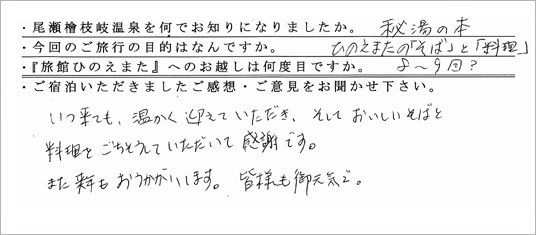 ・尾瀬檜枝岐温泉を何でお知りになりましたか。 秘湯の本
・今回のご旅行の目的はなんですか。 ひのえまたの「そば」と「料理」
・『旅館ひのえまた』へのお越しは何度目ですか。 8〜9回?
・ご宿泊いただきましたご感想・ご意見をお聞かせ下さい。
いつ来ても、温かく迎えていただき、そしておいしいそばと
料理をごちそうしていただいて感謝です。
また来年もおうかがいします。皆様も御元気で。